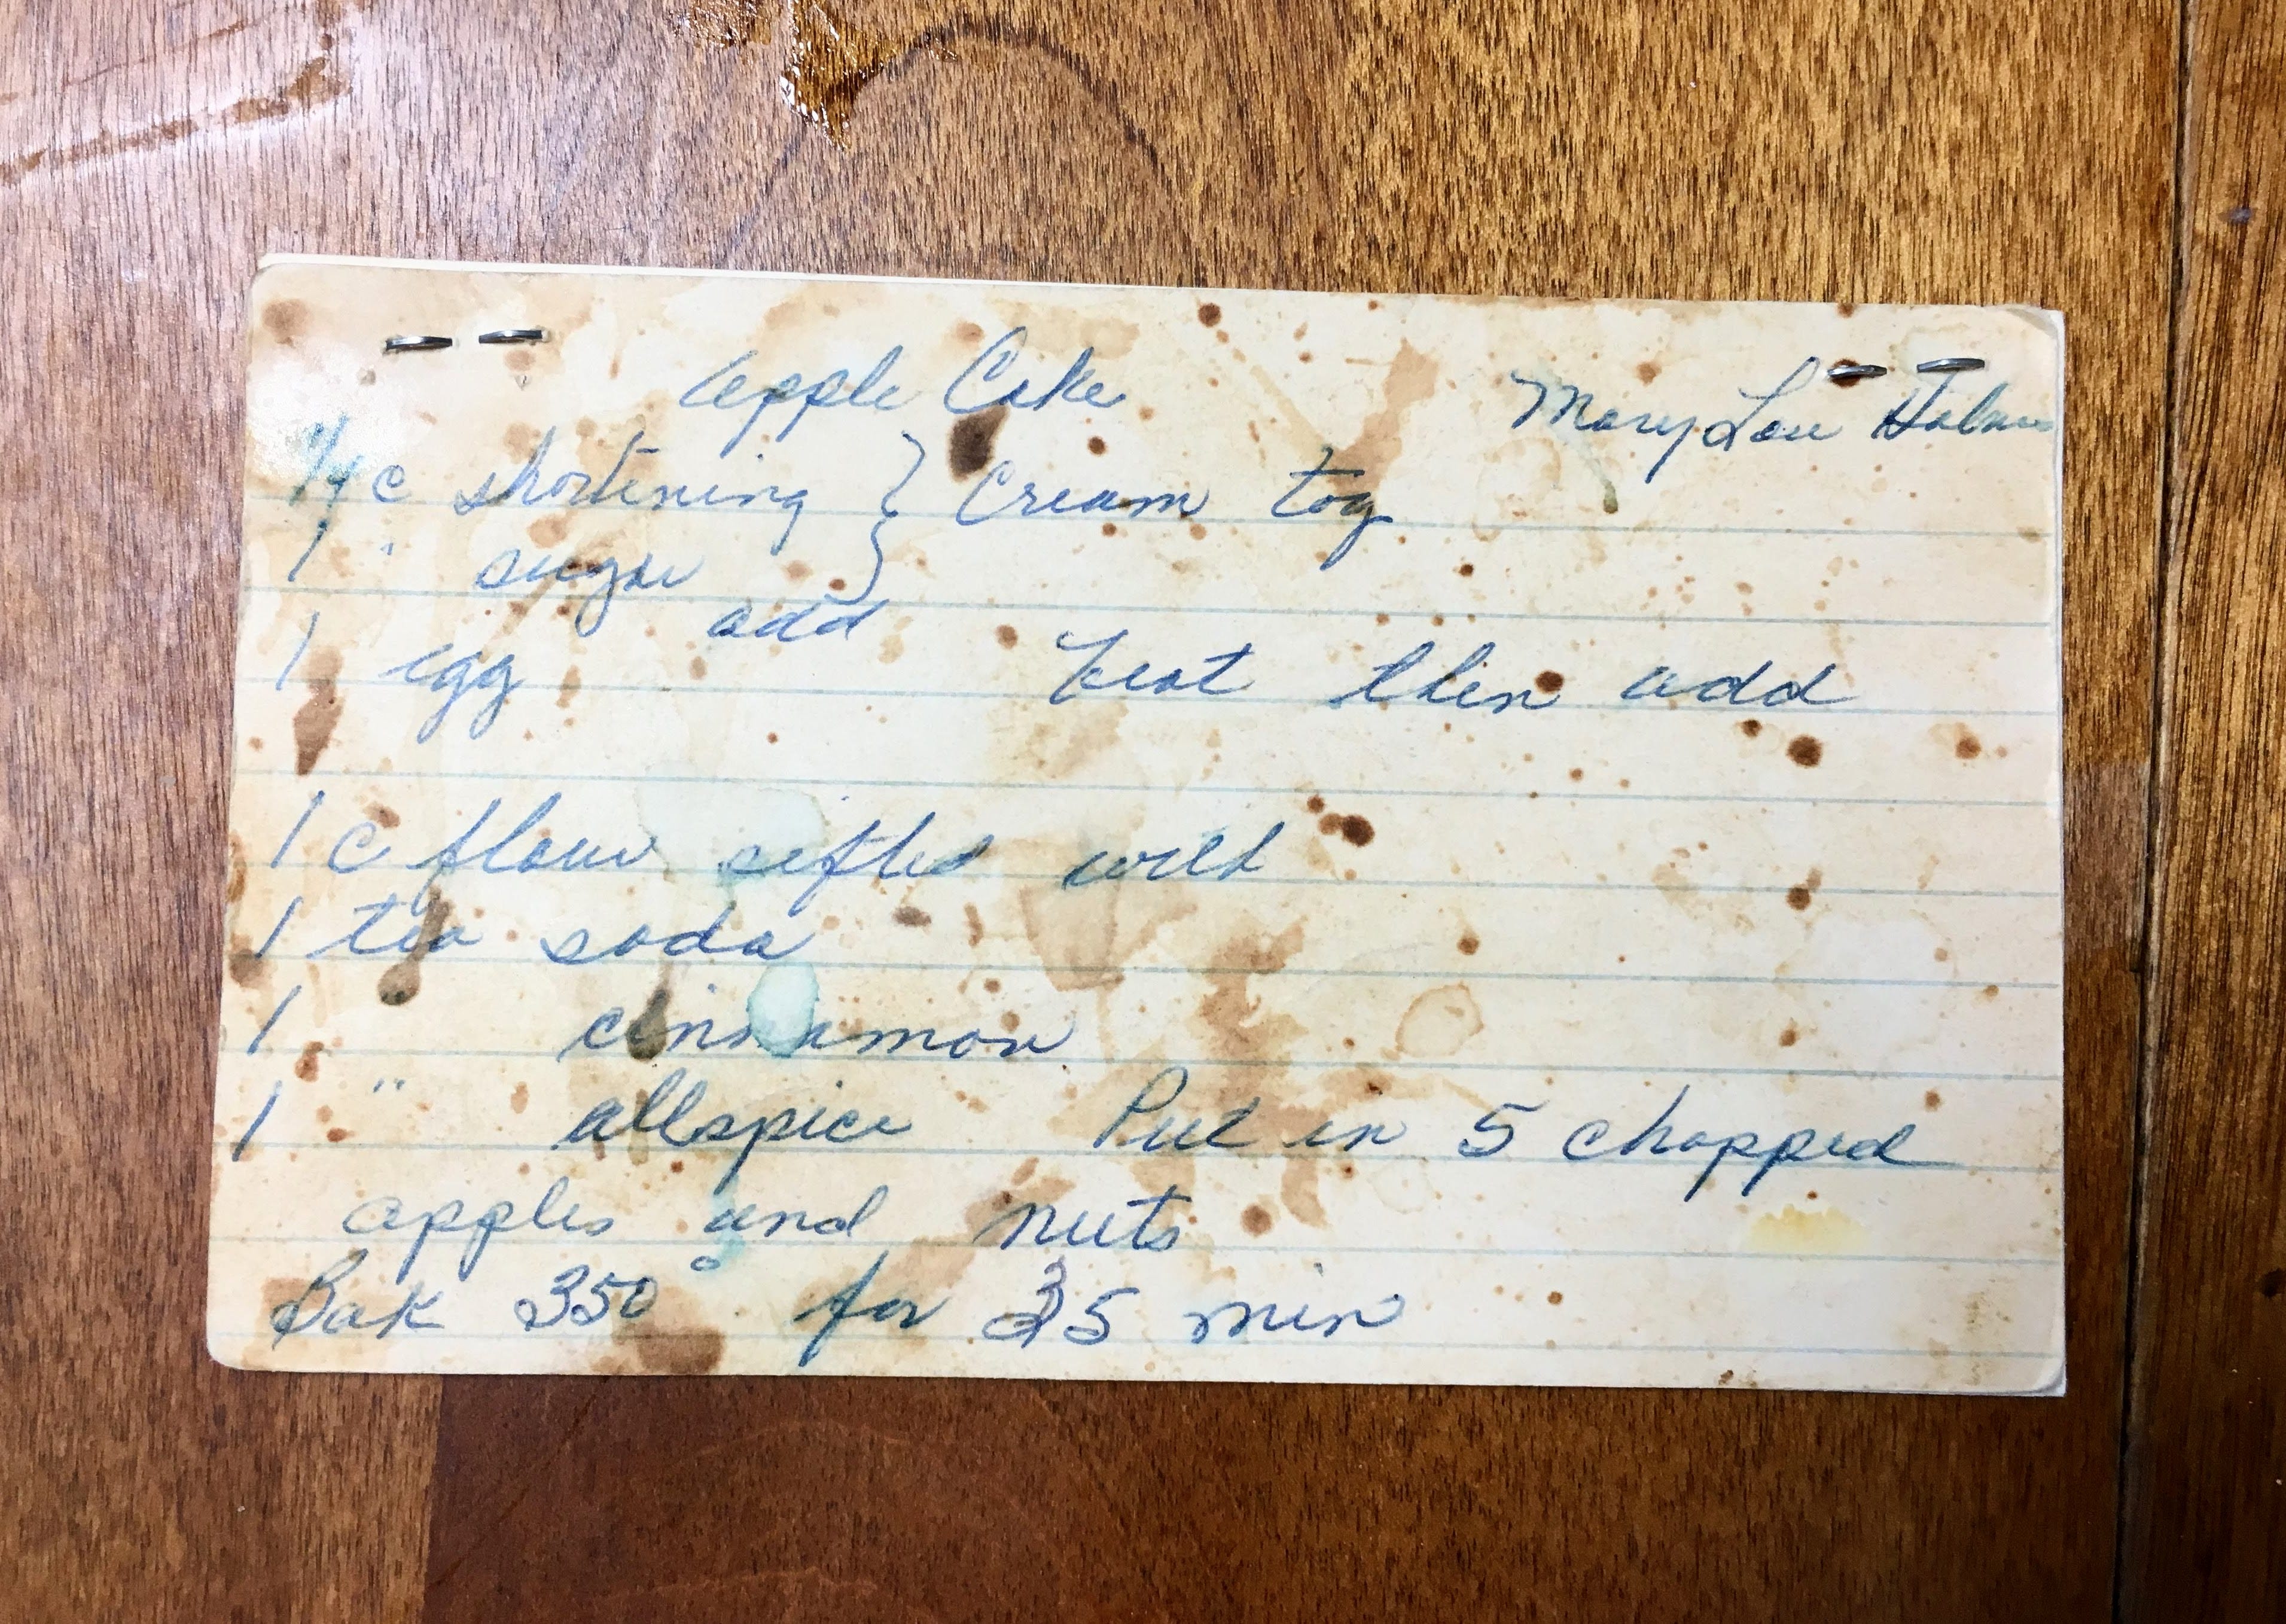 Apple Cake Mary Lou
1/4 c shortening } Cream tog
1 " sugar }
add
1 egg beat then add
1 c flour sifted with
1 tea soda
1 " cinnamon
1 " allspice Put in 5 chopped
apples and nuts
Bak 350° for 35 min